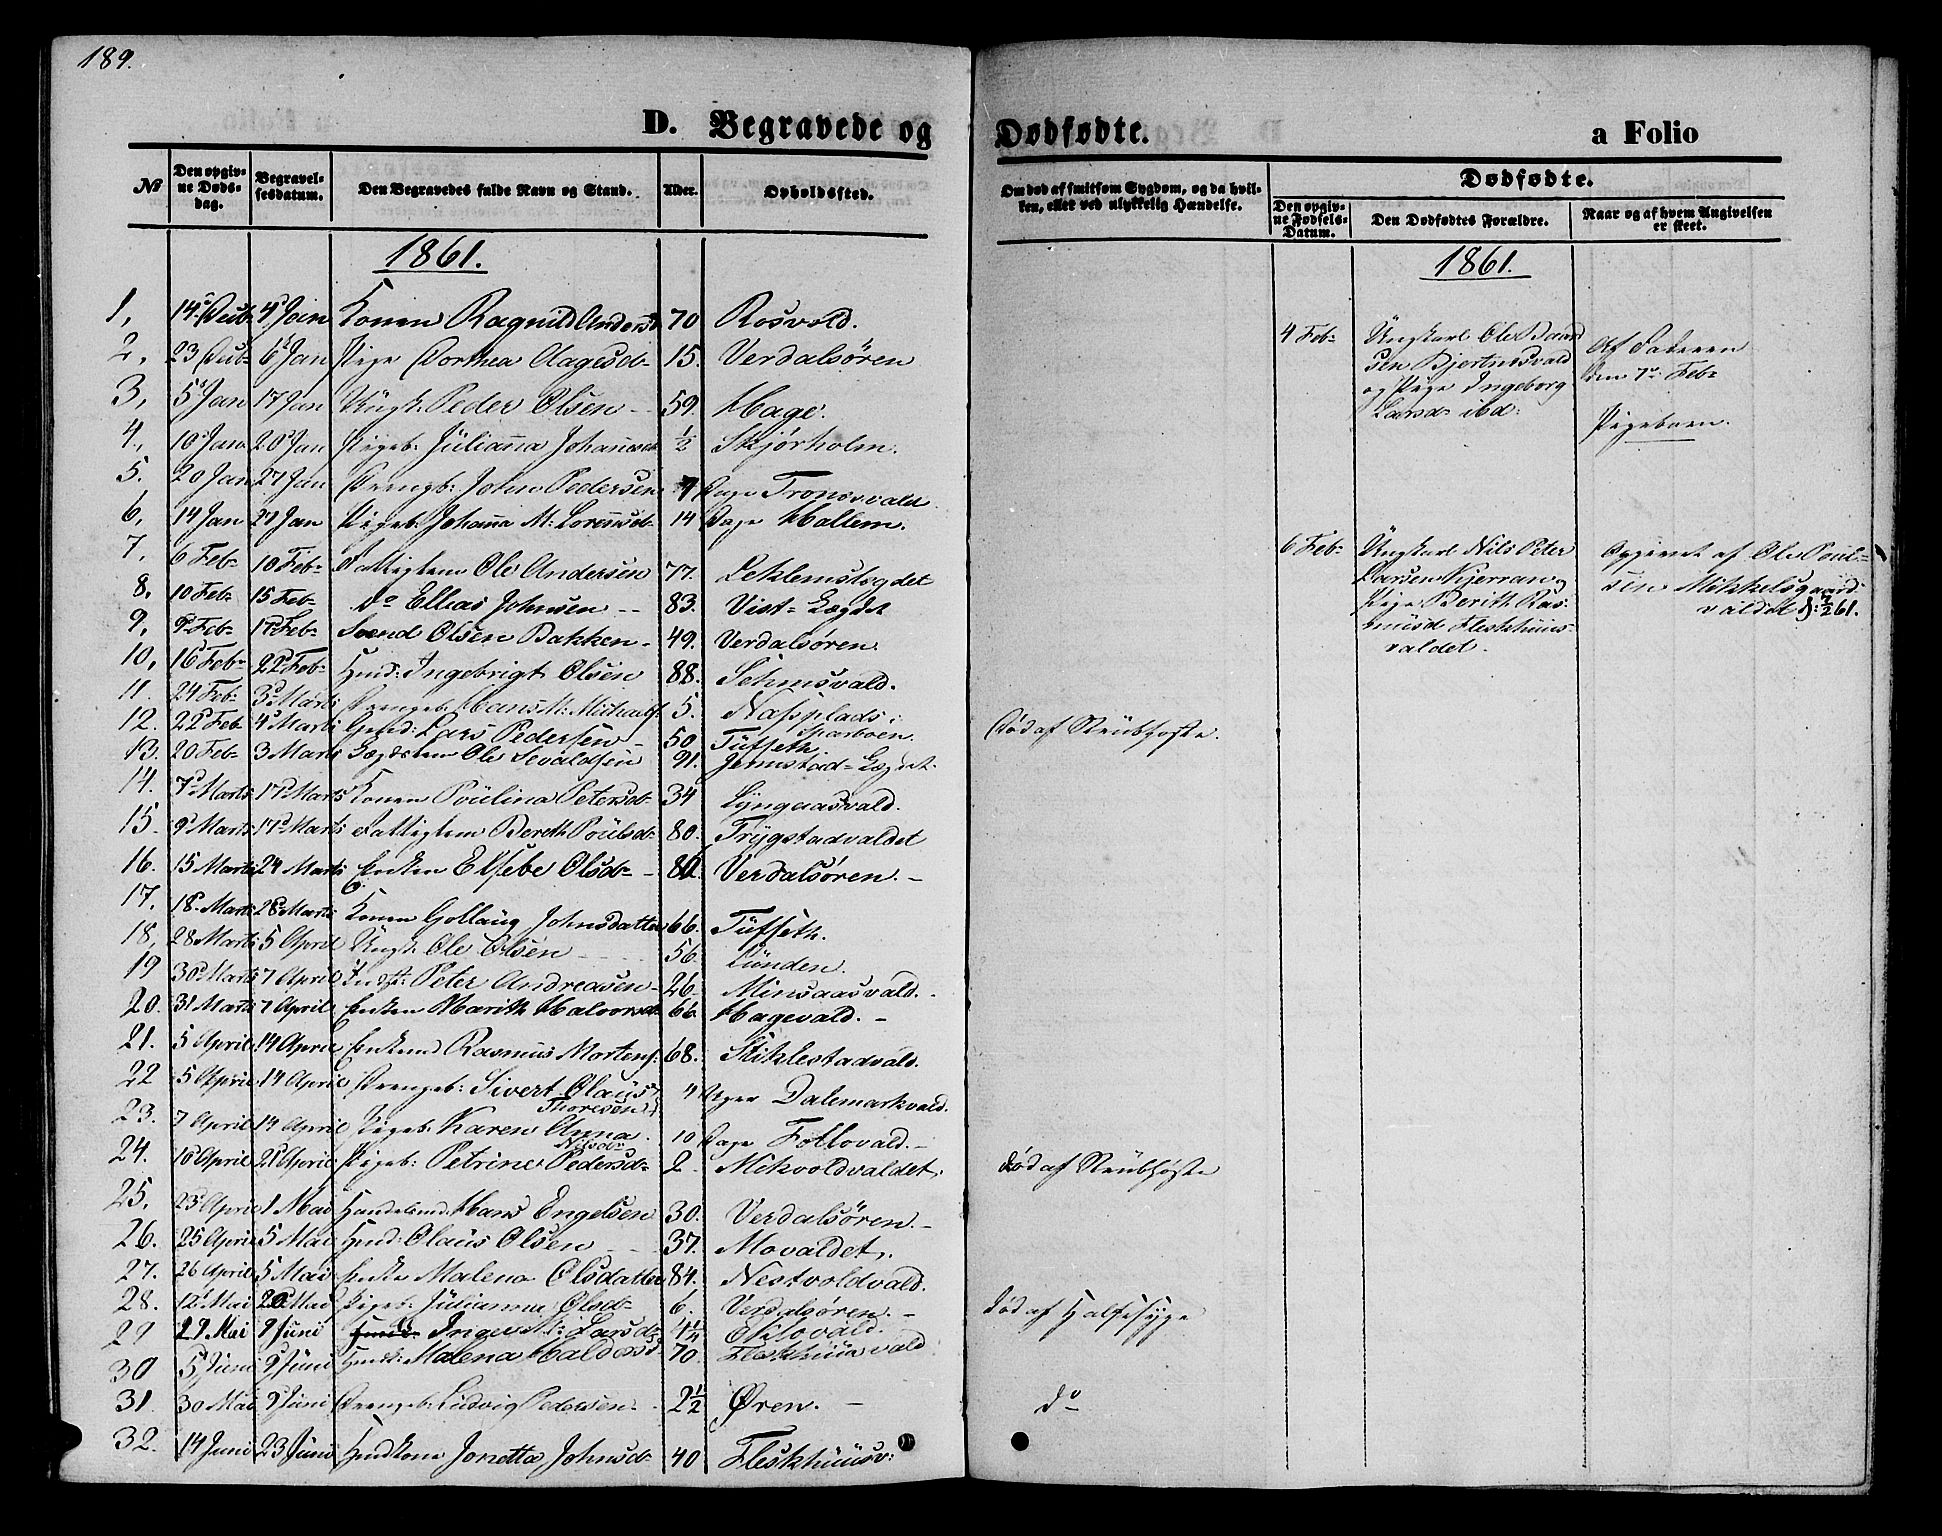 189.
D. Begravede og
Dødfødte.
a Folio
No
Den opgivne Døds-dag.
Begravelsesdatum.
Den Begravedes fulde Navn og Stand.
Alder.
Opholdssted.
Om død af smitsom Sygdom, og da hvilken, eller ved ulykkelig Hændelse.
Dødfødte.
Den opgivne Fødsels-Datum.
Den Dødfødtes Forældre.
Naar og af hvem Angivelsen er skeet.
1861.
1861.
1, 14 4 Konen Ragnild Andersd 70 Rosvold.
2, 23 6 Jan Pige Dorthea Olagesd- 15. Verdalsøren
3, 5 Jan 17 Jan Ungk. Peder Olsen - 59. Hage.
4, 10 Jan 20 Jan Pigeb: Juliana Johannesd ½ Skjørholm.
5. 20 Jan 27 Jan Drengb: John Pedersen 7 Dage Tronsvald
6, 14 Jan 27 Jan Pigeb: Johanna M: Lorentsd- 14 Dage Hallem.
7, 6 Feb- 10 Feb- Fattiglem Ole Andersen 77. Leklemslegdet
8, 10 Feb- 15 Feb- do Ellias Johnsen - 83. Vist-Lægdet
9, 9 Feb- 17 Feb- Svend Olsen Bakken - 49. Verdalsøren.
10, 16 Feb- 22 Feb- Hmd: Ingebrigt Olsen 88. Semsvald.
11. 24 Feb- 3 Marts Drengeb: Hans M: Michaels. 5. Næssplads i Sparboen.
12. 22 Feb 4 Marts Gmd: Lars Pedersen - 50 Tuffeth. Død af Strubhoste.
13. 20 Feb- 3 Marts Lægdslem Ole Sevaldsen 91. Jermstad-Lægdet.
14. 7 Marts 17 Marts Konen Paulina Petersd- 34 Lyngaasvald.
15. 9 Marts 17 Marts Fattiglem Bereth Poulsd- 80. Trygstadvaldet
16. 15 Marts 24 Marts Enken Elsebe Olsd- - 80. Verdalsøren. -
17. 18 Marts 28 Marts Konen Gollaug Johnsdatter 66. Tuffeth.
18, 28 Marts 5 April Ungk. Ole Olsen 56. Lunden.
19 30 Marts 7 April Inds: Peter Andreasen - 26. Minsaasvald.
20. 31 Marts 7 April Enken Marith Halvorsd- 66. Hagevald. -
21. 5 April 14 April Enkemd Rasmus Mortens. 68. Stiklestadvald.
22 5 April 14 April Drengeb: Sivert Olaus Thoresen 4 Uger Dalemarkvald.
23. 7 April 14 April Pigeb: Karen Anna Nilsd- 10 Dage Follovald. -
24. 16 April 21 April Pigeb: Petrine Pedersd- 2 Mikvoldvaldet. død af Strubhoste
25. 23 April 1 Mai Handelsmd Hans Engelsen 30. Verdalsøren. -
26. 25 April 5 Mai Hmd: Olaus Olsen 37. Movaldet.
27. 26 April 5 Mai Enke Malena Olsdatter 84. Nestvoldvald.
28. 12 Mai 20 Mai Pigeb: Julianna Olsd- 6. Verdalsøren. - død af Halsesyge
29 29 Mai 9 Juni Inger M: Larsd- 4¼ Eklovald.
30 5 Juni 9 Juni Hmdk: Malena Haldosd 70. Fleskhuusvald
31. 30 Mai 9 Juni Drengeb: Ludvig Pedersen - 2½ Øren. - do
32. 14 Juni 23 Juni Hmdkone Jonetta Johnsd- 40 Fleskhuusv:
4 Feb- Ungkarl Ole Baard
sen Bjertnesvald
og Pige Ingeborg
Larsd- ibd:
Af Faderen
den 7 Feb-
Pigebarn.
6 Feb- Ungkarl Nils Peter
Larsen Kjerran og
Pige Berith Ras-
musd Fleskhuus-
valdet.
Opgivet af Ole Poul-
sen Mikkelsgaard-
valdet d: 7/2 61.